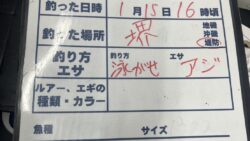 釣った日時 1月15日16時頃
釣った場所 堺 地磯 沖磯 堤防
釣り方 エサ 釣り方 泳がせ エサ アジ
ルアー、エギの種類・カラー
魚種 サイズ